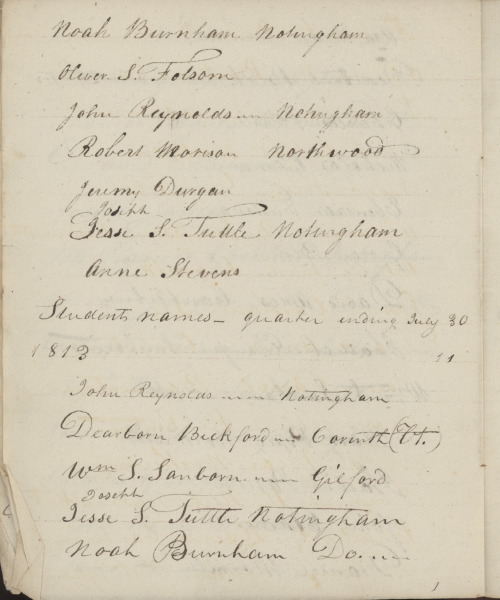 Noah Burnham Notingham
Oliver S. Folsom
John Reynolds Notingham
Robert Morison Northwood
Jeremy Durgan
Joseph
Jesse S. Tuttle Notingham
Anne Stevens
Students names – quarter ending July 30
1813 11
John Reynolds Notingham
Dearborn Bickford Corinth (Vt.)
Wm S. Sanborn Gilford
Joseph
Jesse S. Tuttle Notingham
Noah Burnham Do.